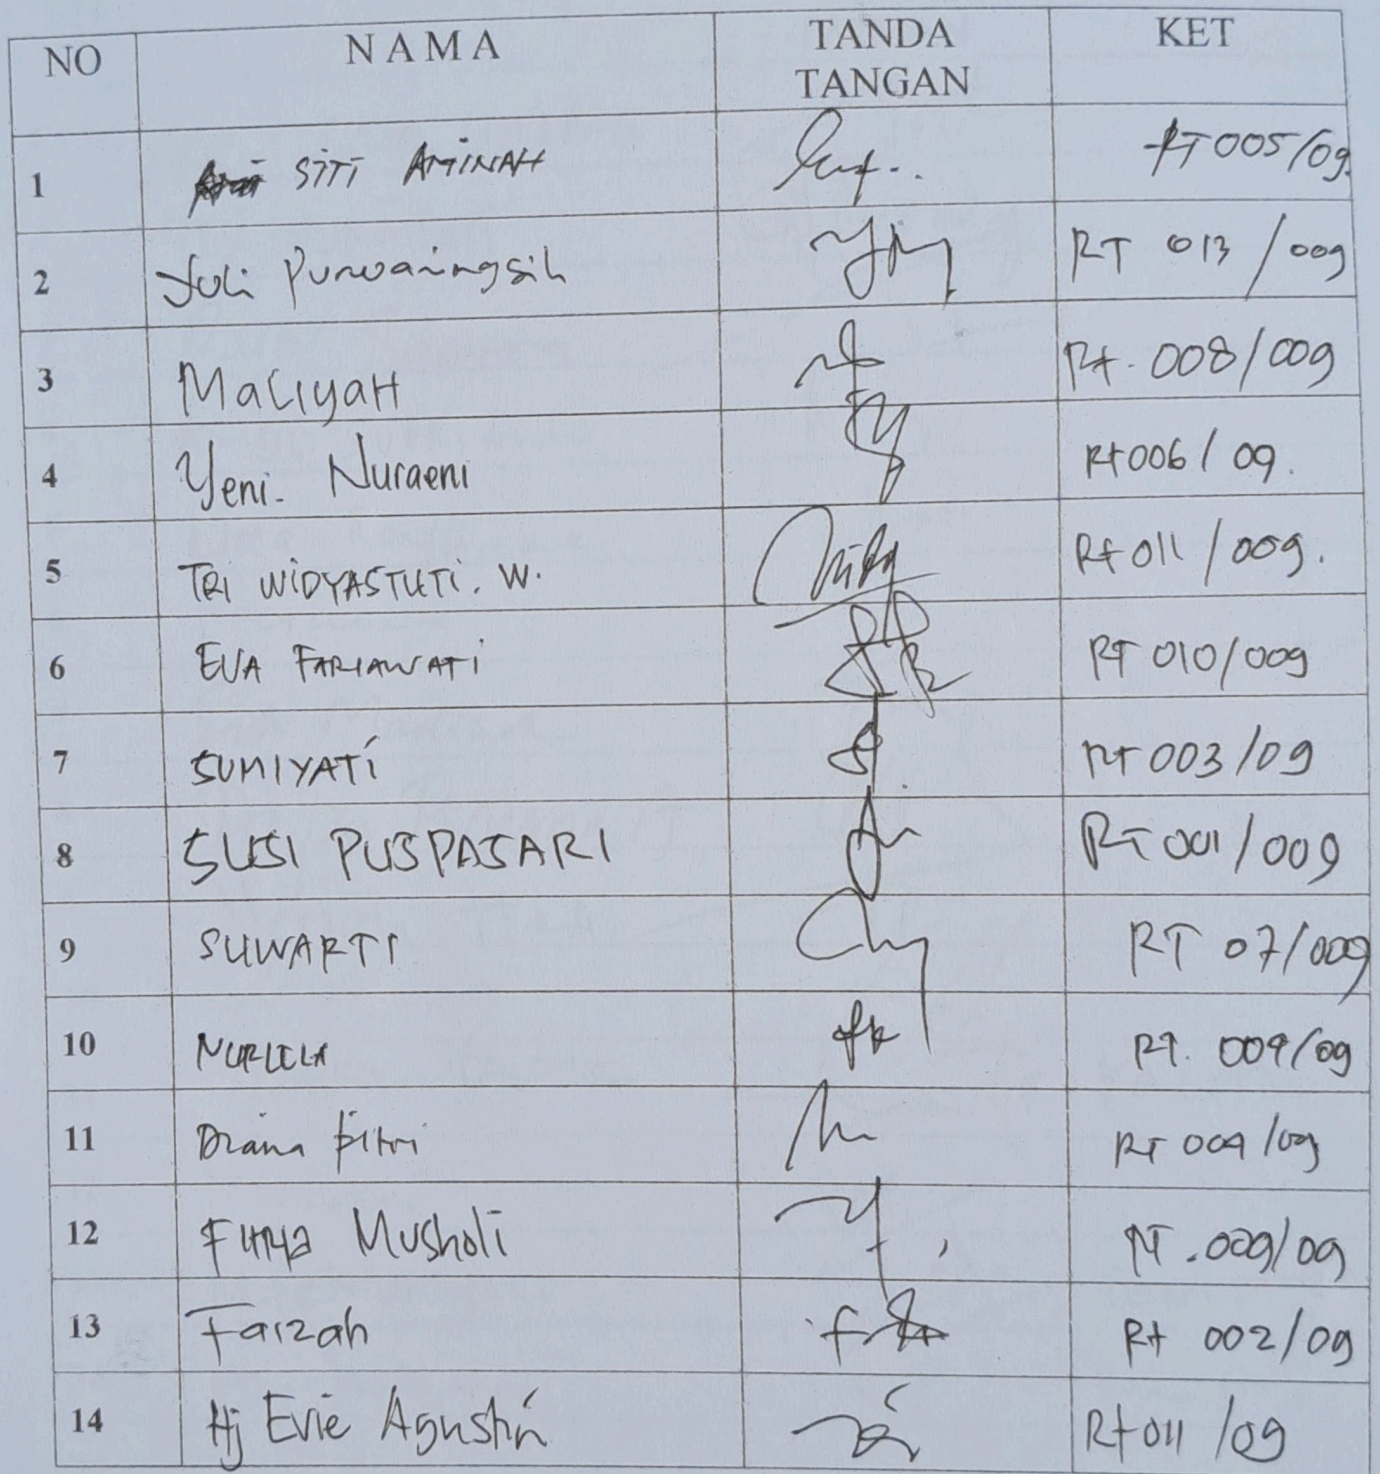 NO NAMA TANDA TANGAN KET
1 SITI AMINAH RT 005/09
2 Yuli Purwaningsih RT 013 / 009
3 MaliyaH Rt. 008/009
4 Yeni. Nuraeni Rt 006 / 09.
5 TRI WIDYASTUTI. W. Rt 011 / 009.
6 EVA FARIAWATI RT 010/009
7 SUMIYATI RT 003 /09
8 SUSI PUSPASARI RT 001 / 009
9 SUWARTI RT 07/009
10 NURLELA RT. 009/09
11 Diana Fitri RT 004 /09
12 Musholi RT .009/09
13 Faizah Rt 002/09
14 Hj Evie Agustin Rt 011 /09